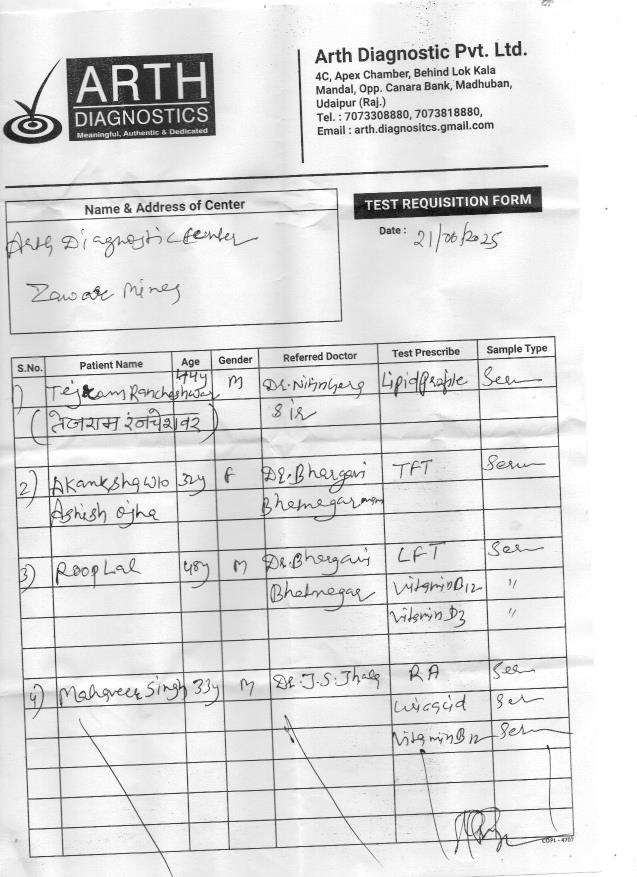 ARTH
DIAGNOSTICS
Meaningful, Authentic & Dedicated
Arth Diagnostic Pvt. Ltd.
4C, Apex Chamber, Behind Lok Kala
Mandal, Opp. Canara Bank, Madhuban,
Udaipur (Raj.)
Tel. : 7073308880, 7073818880,
Email : arth.diagnositcs.gmail.com
Name & Address of Center
Arth Diagnostic Center
Zawar Mines
TEST REQUISITION FORM
Date : 21/06/2025
S.No. Patient Name Age Gender Referred Doctor Test Prescribe Sample Type
1) Tejram Rancheshwar 44y M Dr. Lipid Profile
(तेजराम रंनचेशवर) Sir
2) Akanksha W/o 32y F Dr. Bhargavi TFT Serum
Ashish Ojha Bhetnegar
3) Rooplal 48y M Dr. Bhargavi LFT
Bhetnegar Vitamin B12 "
Vitamin D3 "
4) Mahaveer Singh 33y M Dr. J.S. RA
Vitamin B12
COPL - 4707